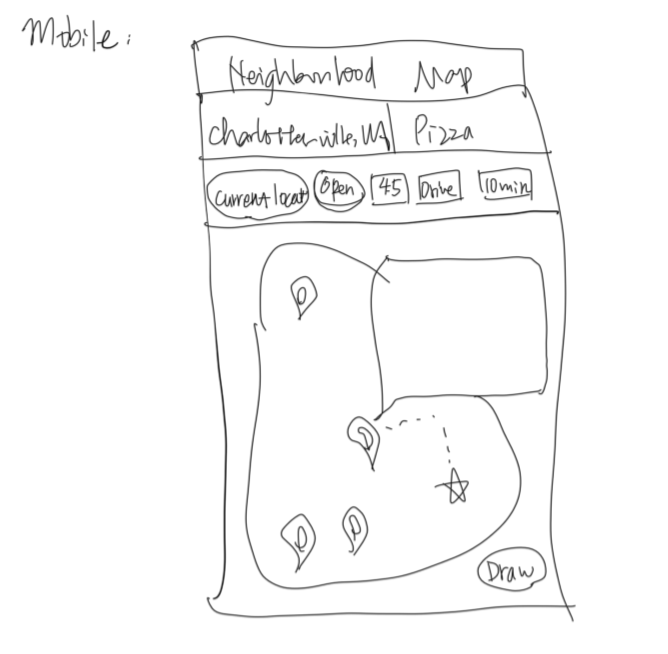 Mobile:
Neighbourhood Map
Charlottesville, VA Pizza
Current locat Open 45 Drive 10min
Draw